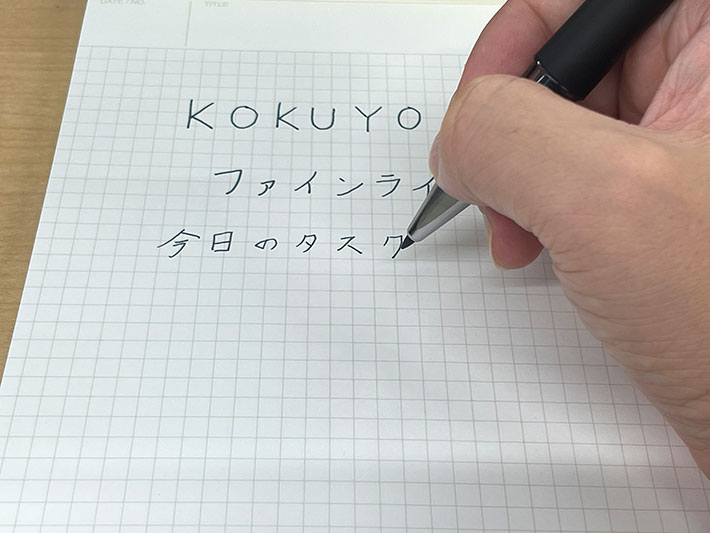 DATE / NO.
TITLE
KOKUYO
ファインライ
今日のタスク